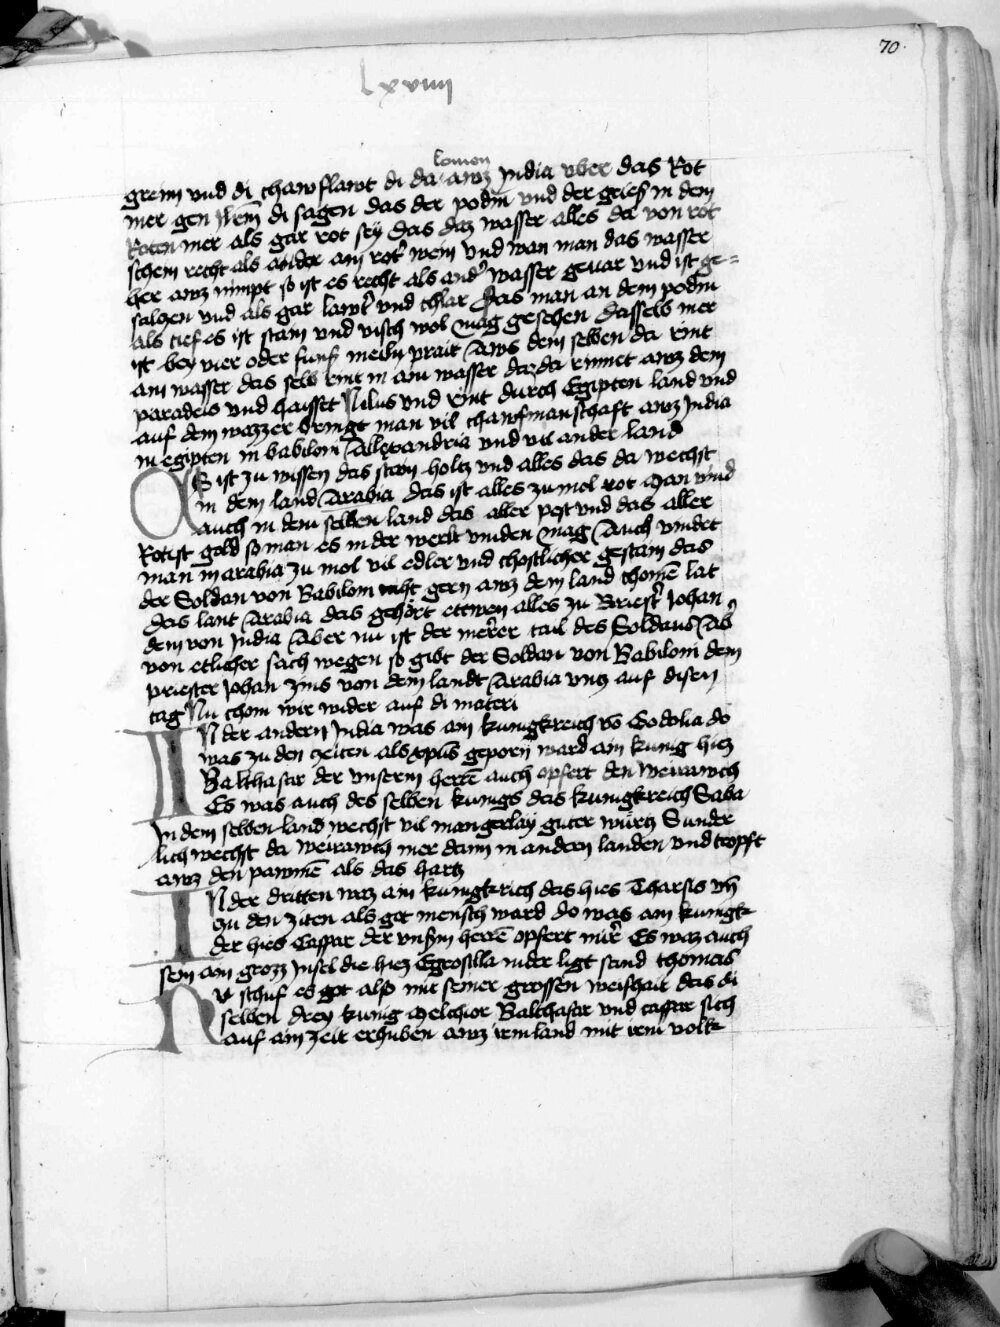 70.
lxviiij
komen
grein vnd di chawflawt di da awz India vber das Rot
mer gen Jerem di sagen das der podm vnd der gries in dem
Roten mer als gar rot sey das daz wasser alles da von rot
schein recht als ander ain rotr wein vnd wan man das wasser
her awz nimpt so ist es recht als andr wasser geuar vnd ist ge=
salczen vnd als gar lawtr vnd chlar das man an dem podm
als tief es ist stain vnd visch wol mag gesehen Dasselb mer
ist bey vier oder funf meiln prait Aws dem selben da rint
ain wasser das selb rint in ain wasser daz da rinnet awz dem
paradeis vnd haisset Nilus vnd rint durch Egipten land vnd
auf dem wazzer bringt man vil chawfmanschaft awz India
in egipten in babiloni Allexandria vnd vil ander land
Es ist zu wissen das stain holtz vnd alles das da wechst
in dem land Arabia das ist alles zu mol rot Man vind
auch in dem selben land das aller pest vnd das aller
Rotist gold so man es in der werlt vinden mag Auch vindet
man in arabia zu mol vil edler vnd chostlicher gestain das
der Soldan von Babiloni nicht gern awz dem land chomen lat
Das lant Arabia das gehort etewen alles zu Briestr Johan
dem von India Aber nu ist der merer tail des Soldans Ab
von etlicher sach wegen so gibt der Soldan von Babiloni dem
priester Johan zins von dem landt Arabia vntz auf disen
tag Nu chom wir wider auf di materi
IN der andern India was ain kunigkreich vo Godolia do
was zu den czeiten als xpus geporn ward ain kunig hiez
Balthasar der vnserm herre auch opfert den weirawch
Es was auch des selben kunigs das kunigkreich Saba
In dem selben land wechst vil mangerlay guter wurtz Sunder
lich wechst da weirawch mer dann in andern landen vnd tropft
awz den pawmen als das hartz
IN der dritten waz ain kunigkrich das hies Tharsis vn
zu den ziten als got mensch ward do was ain kunigk
der hies Caspar der vnserm herre opfert mirr Es waz auch
sein ain grozz Insel die hiez Egrosilla in der ligt sand thomas
Nv schuf es got also mit seiner grossen weishait das di
selben drey kunig Melchior Balthasar vnd caspar sich
auf ain zeit erhuben awz irm land mit irm volk